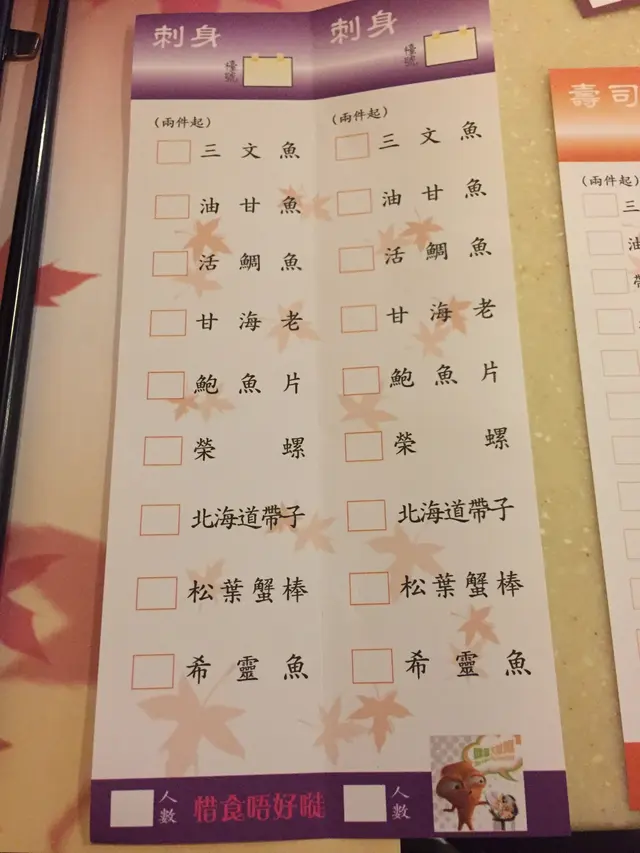 刺身
檯號
(兩件起)
三文魚
油甘魚
活鯛魚
甘海老
鮑魚片
榮螺
北海道帶子
松葉蟹棒
希靈魚
人數
惜食唔好嘥
刺身
檯號
(兩件起)
三文魚
油甘魚
活鯛魚
甘海老
鮑魚片
榮螺
北海道帶子
松葉蟹棒
希靈魚
人數
壽司
(兩件起)
三
油